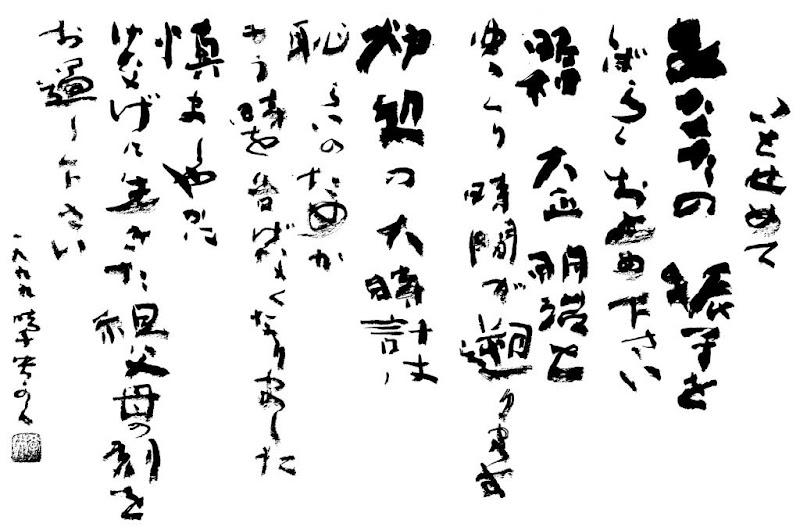 いとせめて
あなたの 振子を
しばらくお止め下さい
昭和 大正 明治と
ゆっくり時間が遡ります
の大時計は
恥じらいのためか
もう時を告げなくなりました
慎ましやかに
けなげに生きた祖父母の刻を
お過し下さい
一九九九